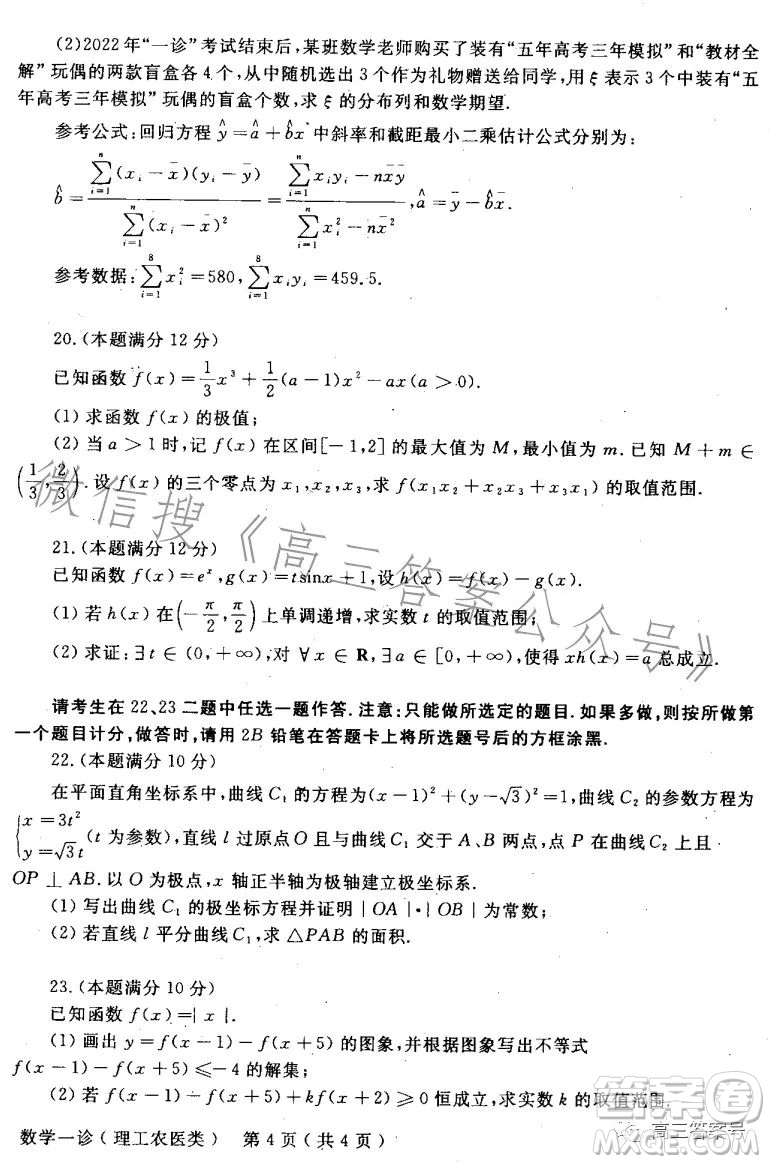 (2)2022年“一诊”考试结束后,某班数学老师购买了装有“五年高考三年模拟”和“教材全
解”玩偶的两款盲盒各4个,从中随机选出3个作为礼物赠送给同学,用ξ表示3个中装有“五
年高考三年模拟”玩偶的盲盒个数,求ξ的分布列和数学期望.
参考公式:回归方程 ŷ=â+b̂x 中斜率和截距最小二乘估计公式分别为:
b̂=∑_{i=1}^{n}(x_i−x̄)(y_i−ȳ)/∑_{i=1}^{n}(x_i−x̄)²=(∑_{i=1}^{n}x_iy_i−nx̄ȳ)/(∑_{i=1}^{n}x_i²−nx̄²),â=ȳ−b̂x̄.
参考数据:∑_{i=1}^{8}x_i²=580,∑_{i=1}^{8}x_iy_i=459.5.
20.(本题满分12分)
已知函数 f(x)=1/3x³+1/2(a−1)x²−ax(a>0).
(1) 求函数 f(x) 的极值;
(2) 当 a>1 时,记 f(x) 在区间[−1,2] 的最大值为 M,最小值为 m. 已知 M+m∈
(1/3,2/3). 设 f(x) 的三个零点为 x₁,x₂,x₃,求 f(x₁x₂+x₂x₃+x₃x₁) 的取值范围.
21.(本题满分12分)
已知函数 f(x)=eˣ,g(x)=tsinx+1,设 h(x)=f(x)−g(x).
(1) 若 h(x) 在(−π/2,π/2) 上单调递增,求实数 t 的取值范围;
(2) 求证:∃t∈(0,+∞),对 ∀x∈R,∃a∈[0,+∞),使得 xh(x)=a 总成立.
请考生在 22、23 二题中任选一题作答.注意:只能做所选定的题目.如果多做,则按所做第
一个题目计分,做答时,请用 2B 铅笔在答题卡上将所选题号后的方框涂黑.
22.(本题满分10分)
在平面直角坐标系中,曲线 C₁ 的方程为(x−1)²+(y−√3)²=1,曲线 C₂ 的参数方程为
{x=3t² y=√3t (t 为参数),直线 l 过原点 O 且与曲线 C₁ 交于 A、B 两点,点 P 在曲线 C₂ 上且
OP⊥AB. 以 O 为极点,x 轴正半轴为极轴建立极坐标系.
(1) 写出曲线 C₁ 的极坐标方程并证明|OA|·|OB|为常数;
(2) 若直线 l 平分曲线 C₁,求 △PAB 的面积.
23.(本题满分10分)
已知函数 f(x)=|x|.
(1) 画出 y=f(x−1)−f(x+5) 的图象,并根据图象写出不等式
f(x−1)−f(x+5)≤−4 的解集;
(2) 若 f(x−1)−f(x+5)+kf(x+2)≥0 恒成立,求实数 k 的取值范围.
数学一诊(理工农医类) 第4页(共4页)
微信搜《高三答案公众号》
答案圈
高三答案号